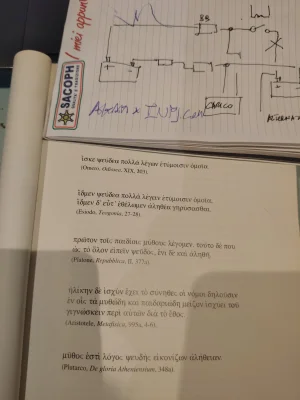 SACOPH
/ miei appunti
CARICO
ἴσκε ψεύδεα πολλὰ λέγων ἐτύμοισιν ὁμοῖα.
(Omero, Odissea, XIX, 203).
ἴδμεν ψεύδεα πολλὰ λέγειν ἐτύμοισιν ὁμοῖα,
ἴδμεν δ' εὖτ' ἐθέλωμεν ἀληθέα γηρύσασθαι.
(Esiodo, Teogonia, 27-28).
πρῶτον τοῖς παιδίοις μύθους λέγομεν, τοῦτο δέ που
ὡς τὸ ὅλον εἰπεῖν ψεῦδος, ἔνι δὲ καὶ ἀληθῆ.
(Platone, Repubblica, II, 377a).
ἡλίκην δὲ ἰσχὺν ἔχει τὸ σύνηθες οἱ νόμοι δηλοῦσιν
ἐν οἷς τὰ μυθώδη καὶ παιδαριώδη μεῖζον ἰσχύει τοῦ
γιγνώσκειν περὶ αὐτῶν διὰ τὸ ἔθος.
(Aristotele, Metafisica, 995a, 4-6).
μῦθος ἐστὶ λόγος ψευδὴς εἰκονίζων ἀλήθειαν.
(Plutarco, De gloria Atheniensium, 348a).